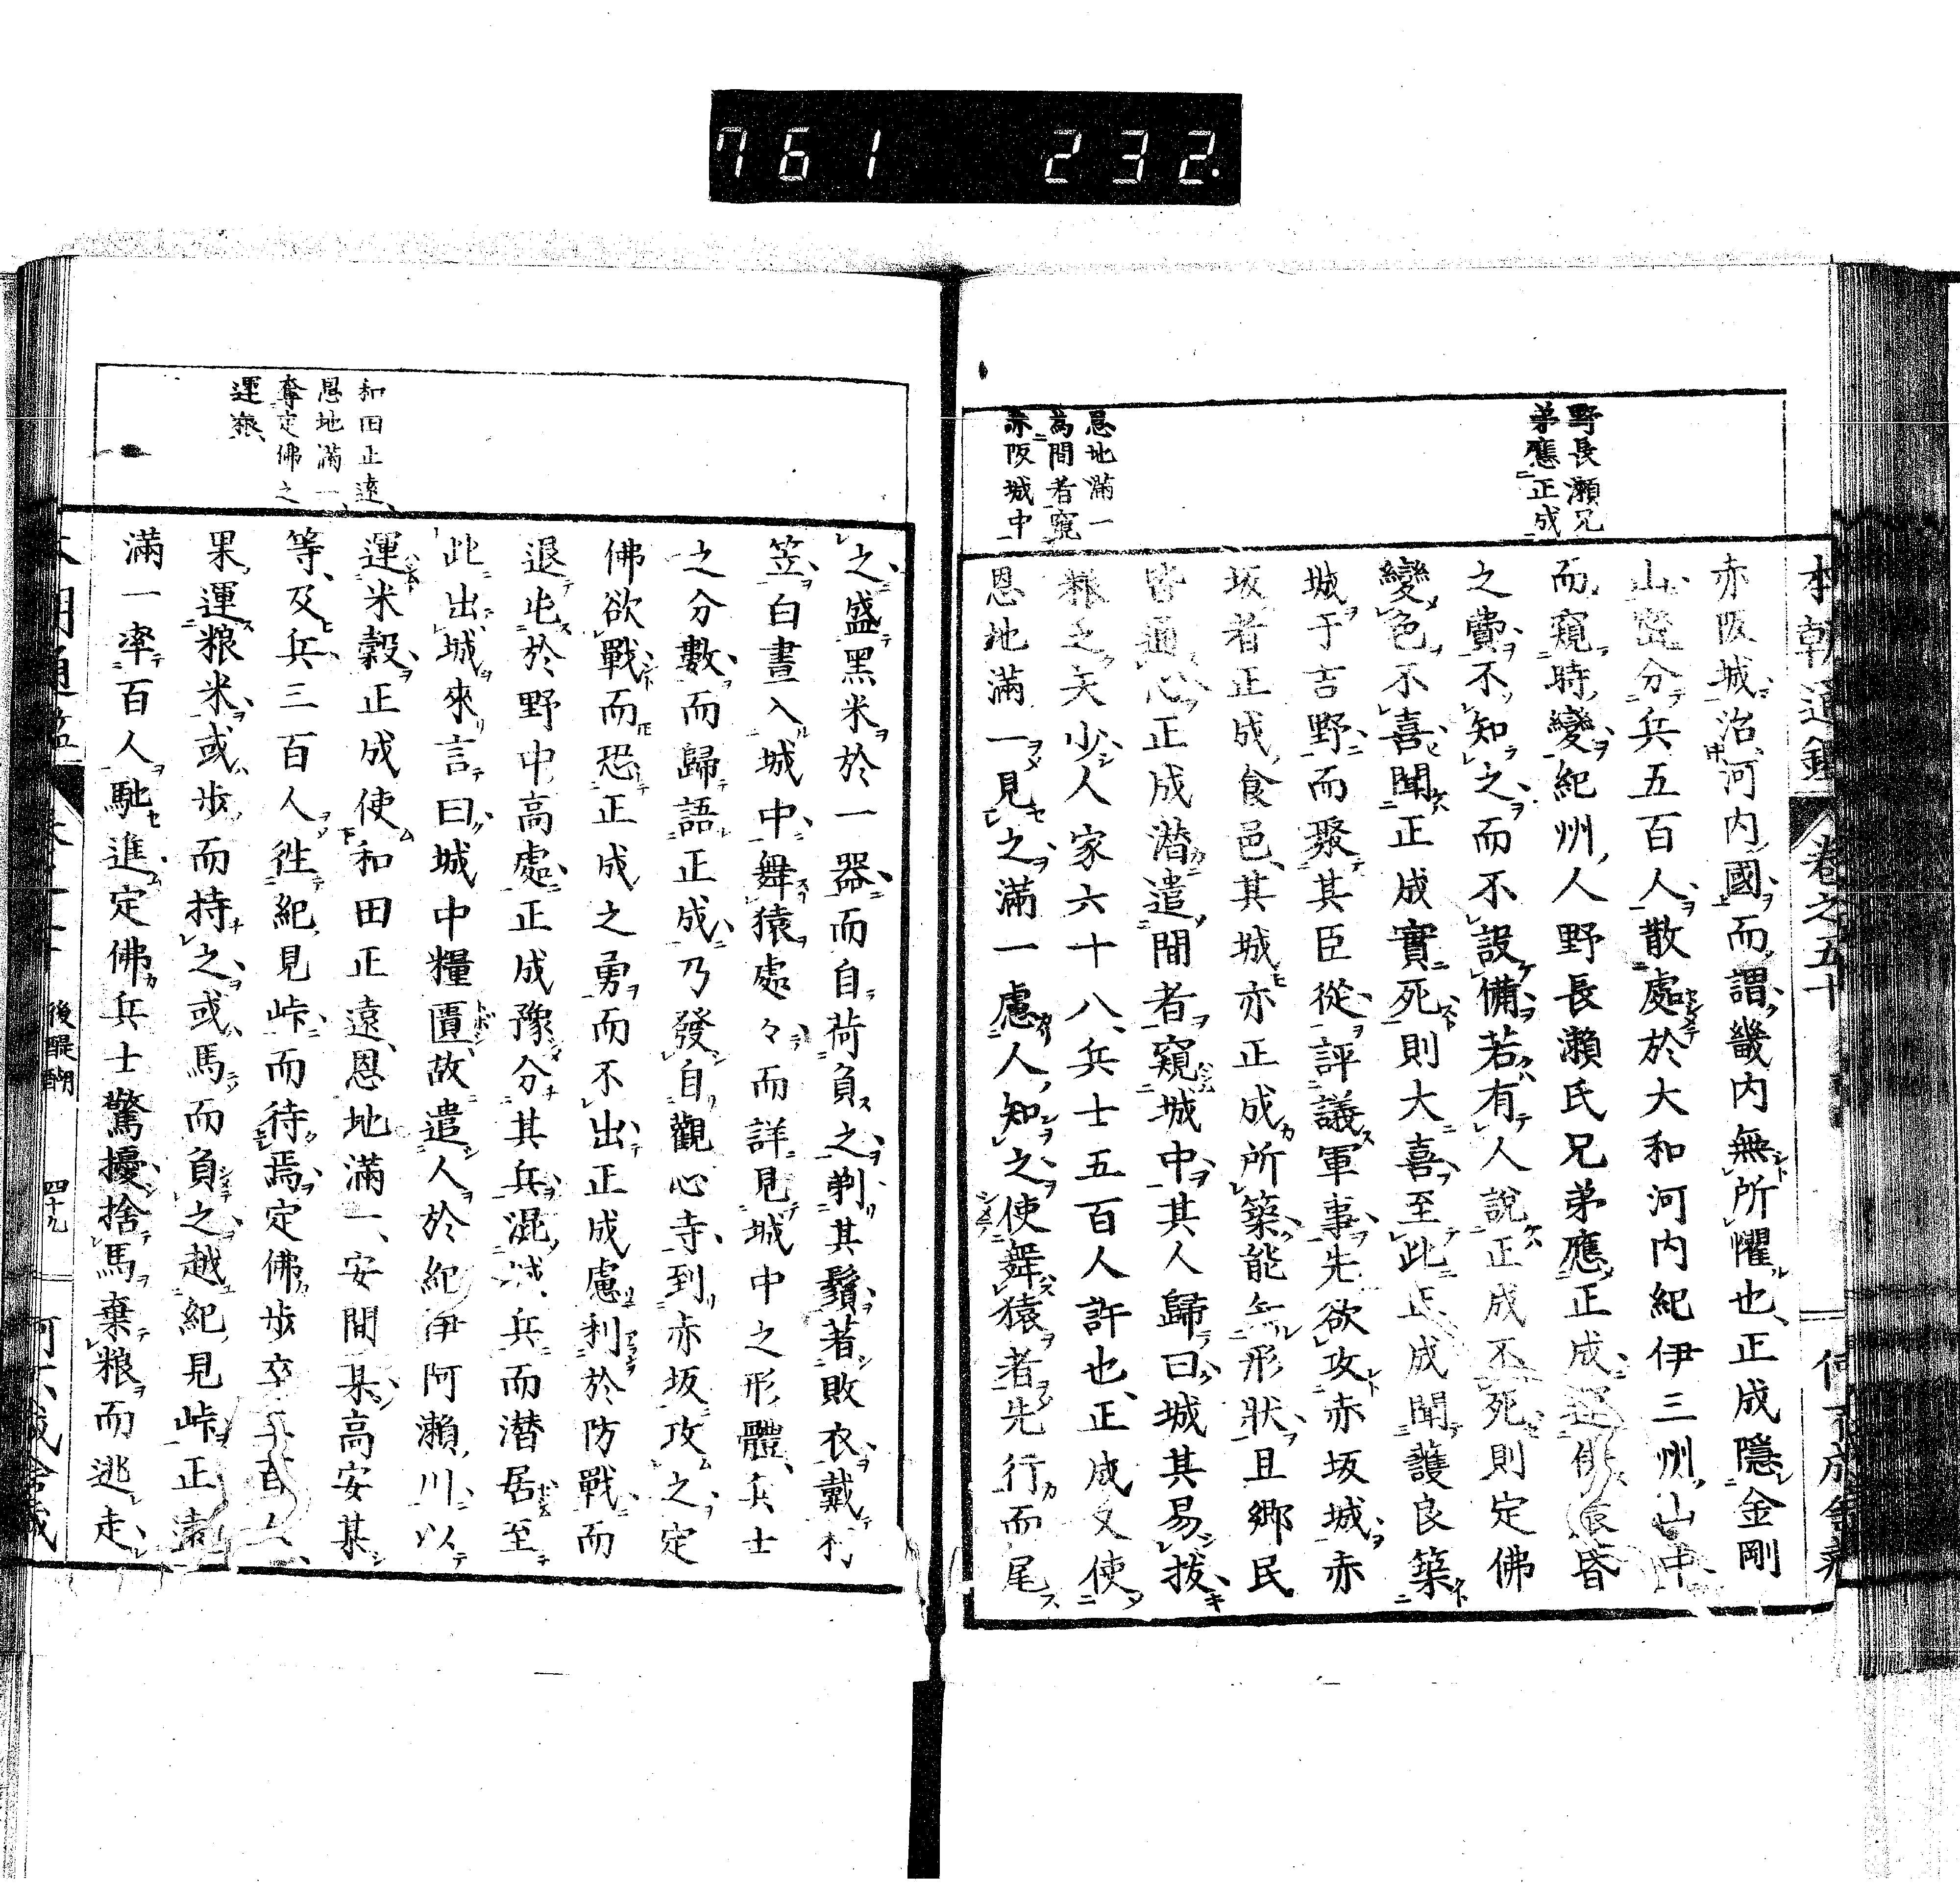 761 232.
本朝通鑑 卷之五十
野長瀬兄
弟應正成
恩地滿一
爲間者窺
赤阪城中
赤阪城治河内國而謂畿内無所懼也正成隱金剛
山密分兵五百人散處於大和河内紀伊三州山中
而窺時變紀州人野長瀬氏兄弟應正成運
之費不知之而不設備若有人說正成不死則定佛
變色不喜聞正成實死則大喜至此正成聞護良築
城于吉野而聚其臣從評議軍事先欲攻赤坂城赤
坂者正成食邑其城亦正成所築能知形狀且郷民
皆通心正成潜遣間者窺城中其人歸曰城其易拔
粮乏矢少人家六十八兵士五百人許也正成又使
恩地滿一見之滿一慮人知之使舞猿者先行而尾
和田正遠
恩地滿一
奪定佛之
運粮
之盛黑米於一器而自荷負之剃其鬚著敗衣戴
笠白晝入城中舞猿處々而詳見城中之形體兵士
之分數而歸語正成乃發自觀心寺到赤坂攻之定
佛欲戰而恐正成之勇而不出正成慮利於防戰而
退屯於野中高處正成豫分其兵混城兵而潜居至
此出城來言曰城中糧匱故遣人於紀伊阿瀬川以
運米穀正成使和田正遠恩地滿一安間某高安某
等及兵三百人徃紀見峠而待焉定佛歩卒百人
果運粮米或歩而持之或馬而負之越紀見峠正遠
滿一率百人馳進定佛兵士驚擾捨馬棄粮而逃走
後醍醐 四十九